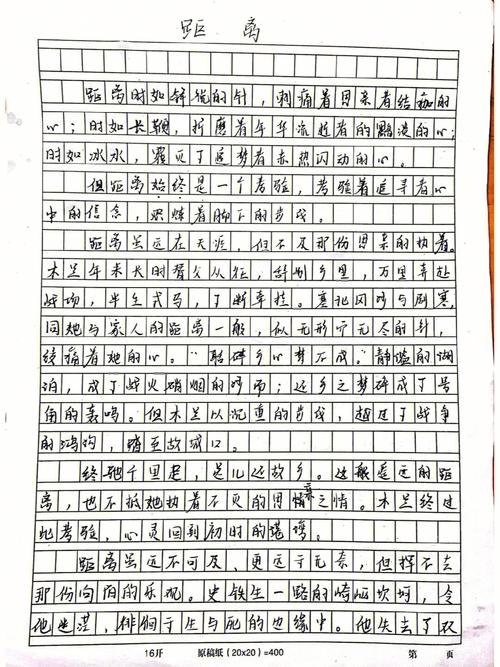 距离
距离时如锋锐的针，刺痛着思亲者结痂的
心；时如长鞭，折磨着年华流逝者的黯淡的心；
时如冰水，覆灭了追梦者赤热闪动的心。
但距离始终是一个考验，考验着追寻者心
中的信念，淬炼着脚下的步伐。
距离虽远在天涯，但不及那份思亲的执着。
木兰年未长时替父从征，辞别乡里，万里奔赴
战场，半生戎马，了断牵挂。塞北风吵与剧寒，
同她与家人的距离一般，似无形而无尽的针，
绞痛着她的心。"聒碎乡心梦不成。"静谧的湖
泊，成了战火硝烟的吵雨；还乡之梦碎成了号
角的哀鸣。但木兰以沉重的步伐，越过了战争
的鸿沟，踏至故城口。
终驰千里足，送儿还故乡。这般遥远的距
离，也不抵她执着不灭的思亲之情。木兰终过
此考验，心灵回到初时的港湾。
距离虽远不可及，更远于无奈，但挥不去
那份向阳的乐观。史铁生一路的崎岖坎坷，令
他迷茫，徘徊于生与死的边缘中。他失去了双
16开 原稿纸（20×20）=400 第 页